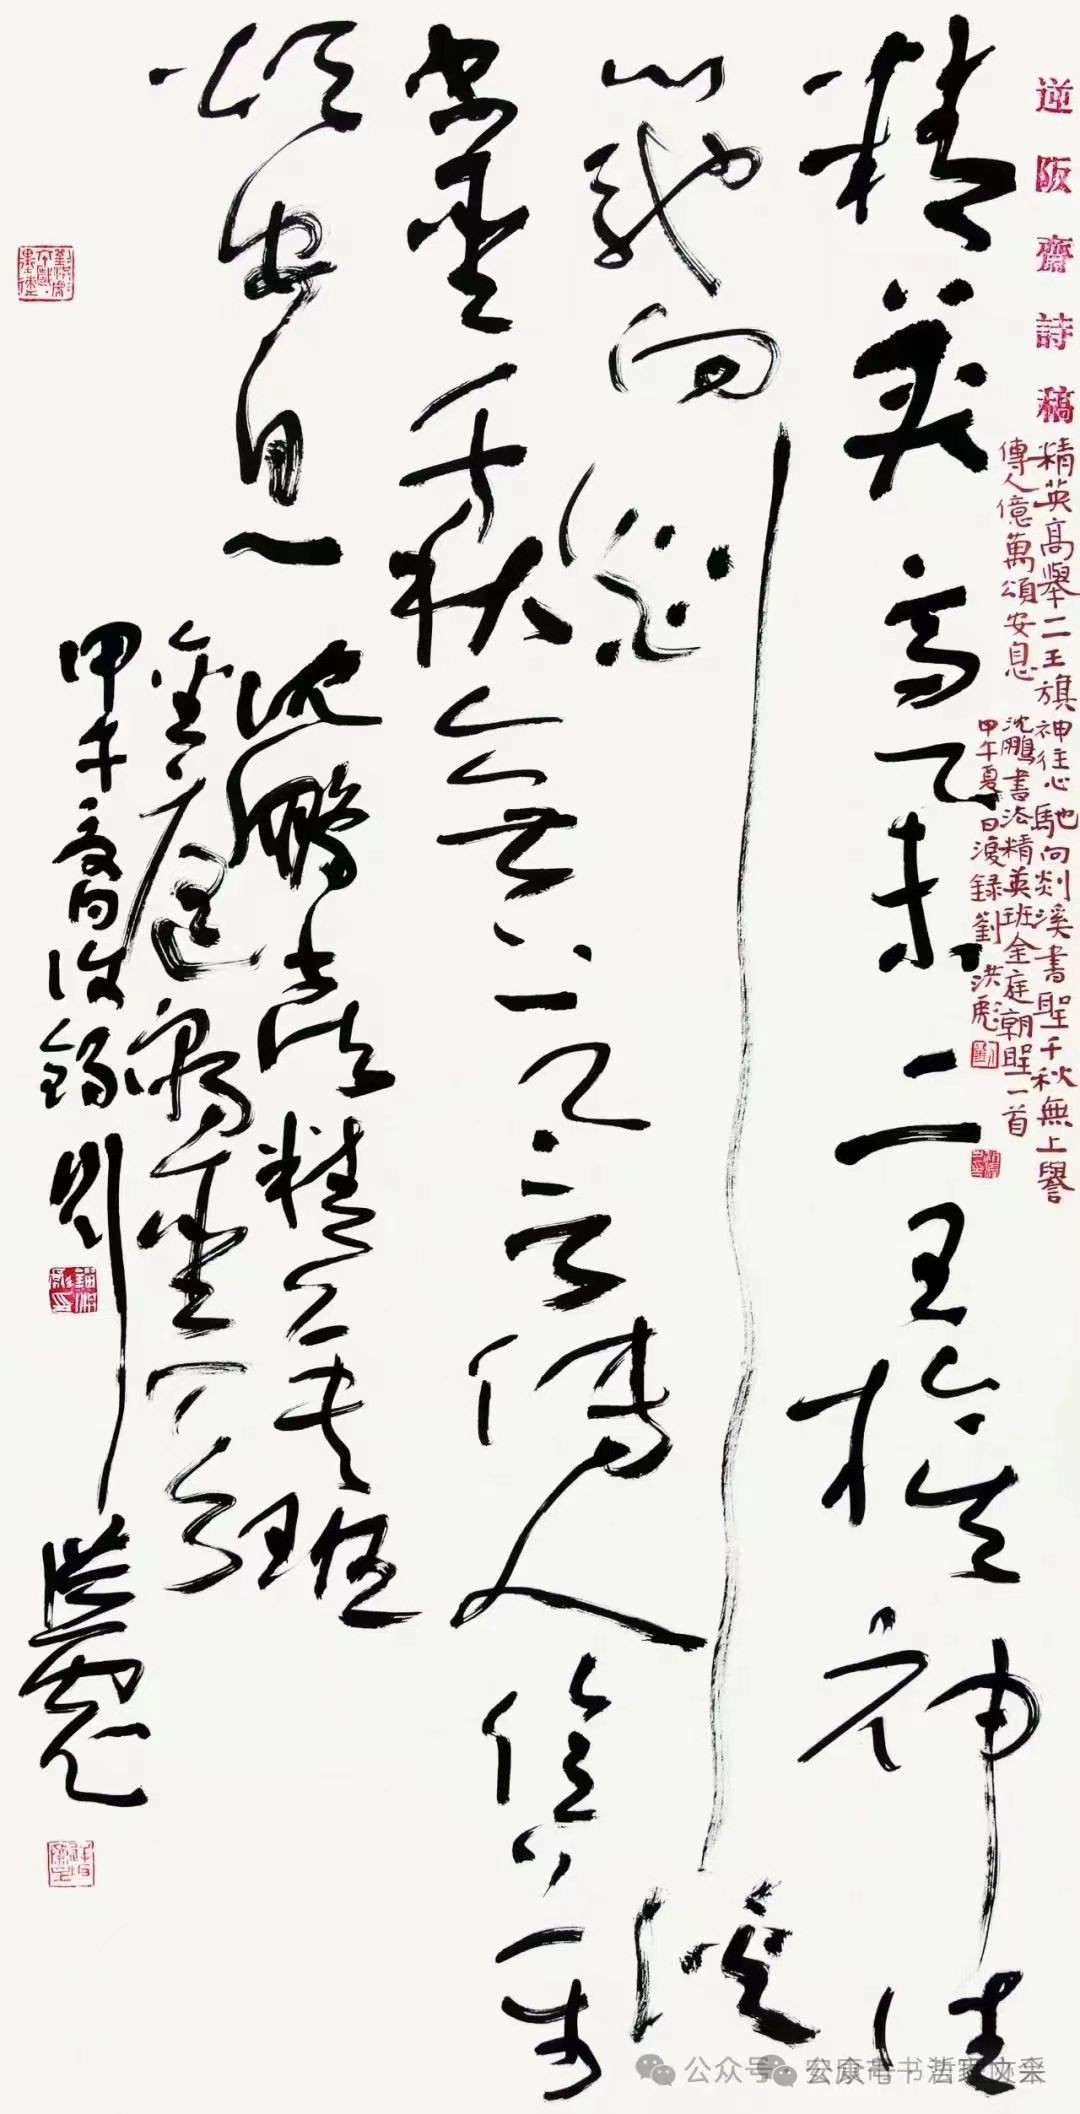 逆阪齋詩稿
精英高舉二王旗神往心馳向剡溪書聖千秋無上譽
傳人億萬頌安息
沈鵬書法精英班金庭朝聖一首
甲午夏日復録劉洪彪
精英高舉二王旗神往
心馳向剡溪
書聖千秋無上譽傳人億萬
頌安息
沈鵬書法精英班
金庭朝聖一首
甲午夏日復錄劉洪彪
公众号